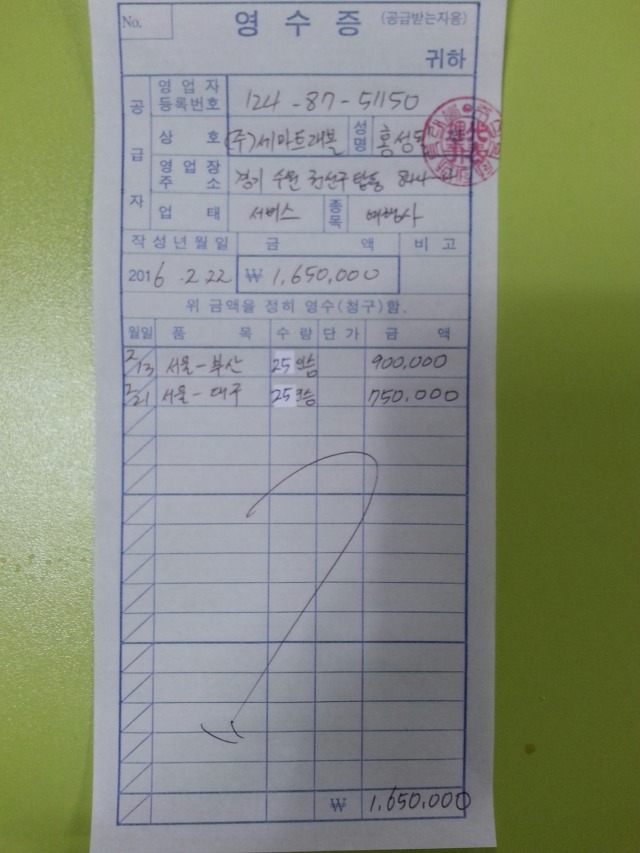 No.
영수증 (공급받는자용)
귀하
공급자
영업자 등록번호 124-87-51150
상호 (주)세마트래블 성명 홍성
영업장 주소 경기 수원 권선구 탑동
업태 서비스 종목 여행사
작성년월일 금액 비고
2016.2.22 ₩1,650,000
위 금액을 정히 영수(청구)함.
월일 품목 수량 단가 금액
2/13 서울-부산 25인승 900,000
2/21 서울-대구 25인승 750,000
₩ 1,650,000